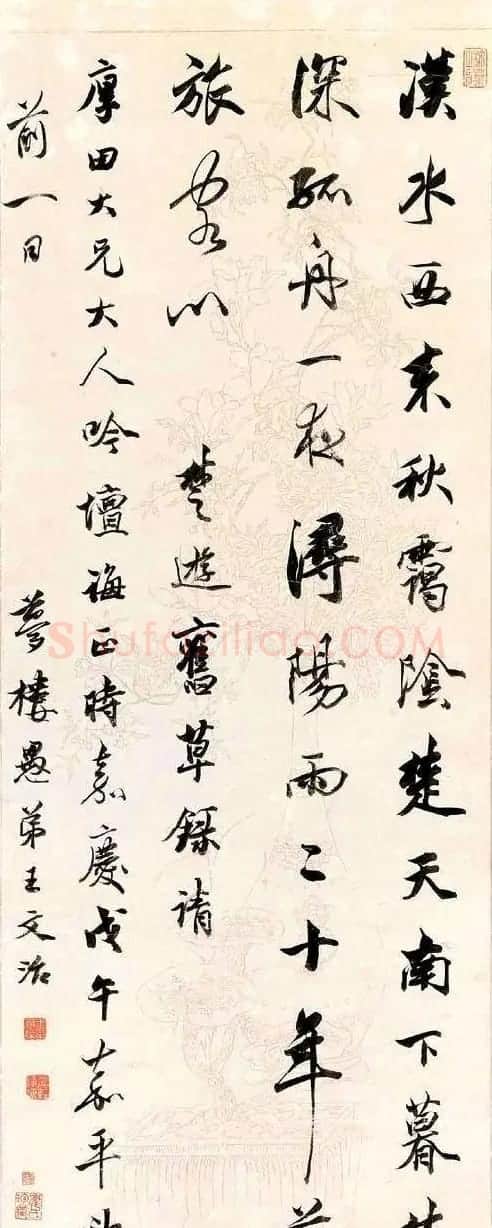 漢水西来秋靄陰楚天南下暮
深孤舟一夜潯陽雨二十年前
旅客心 楚遊舊草録請
厚田大兄大人吟壇誨正時嘉慶戊午嘉平
前一日 夢樓愚弟王文治
ShufaZiliao.COM